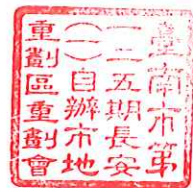 臺南市第
一二五期長安
(一)自辦市地
重劃區重劃會